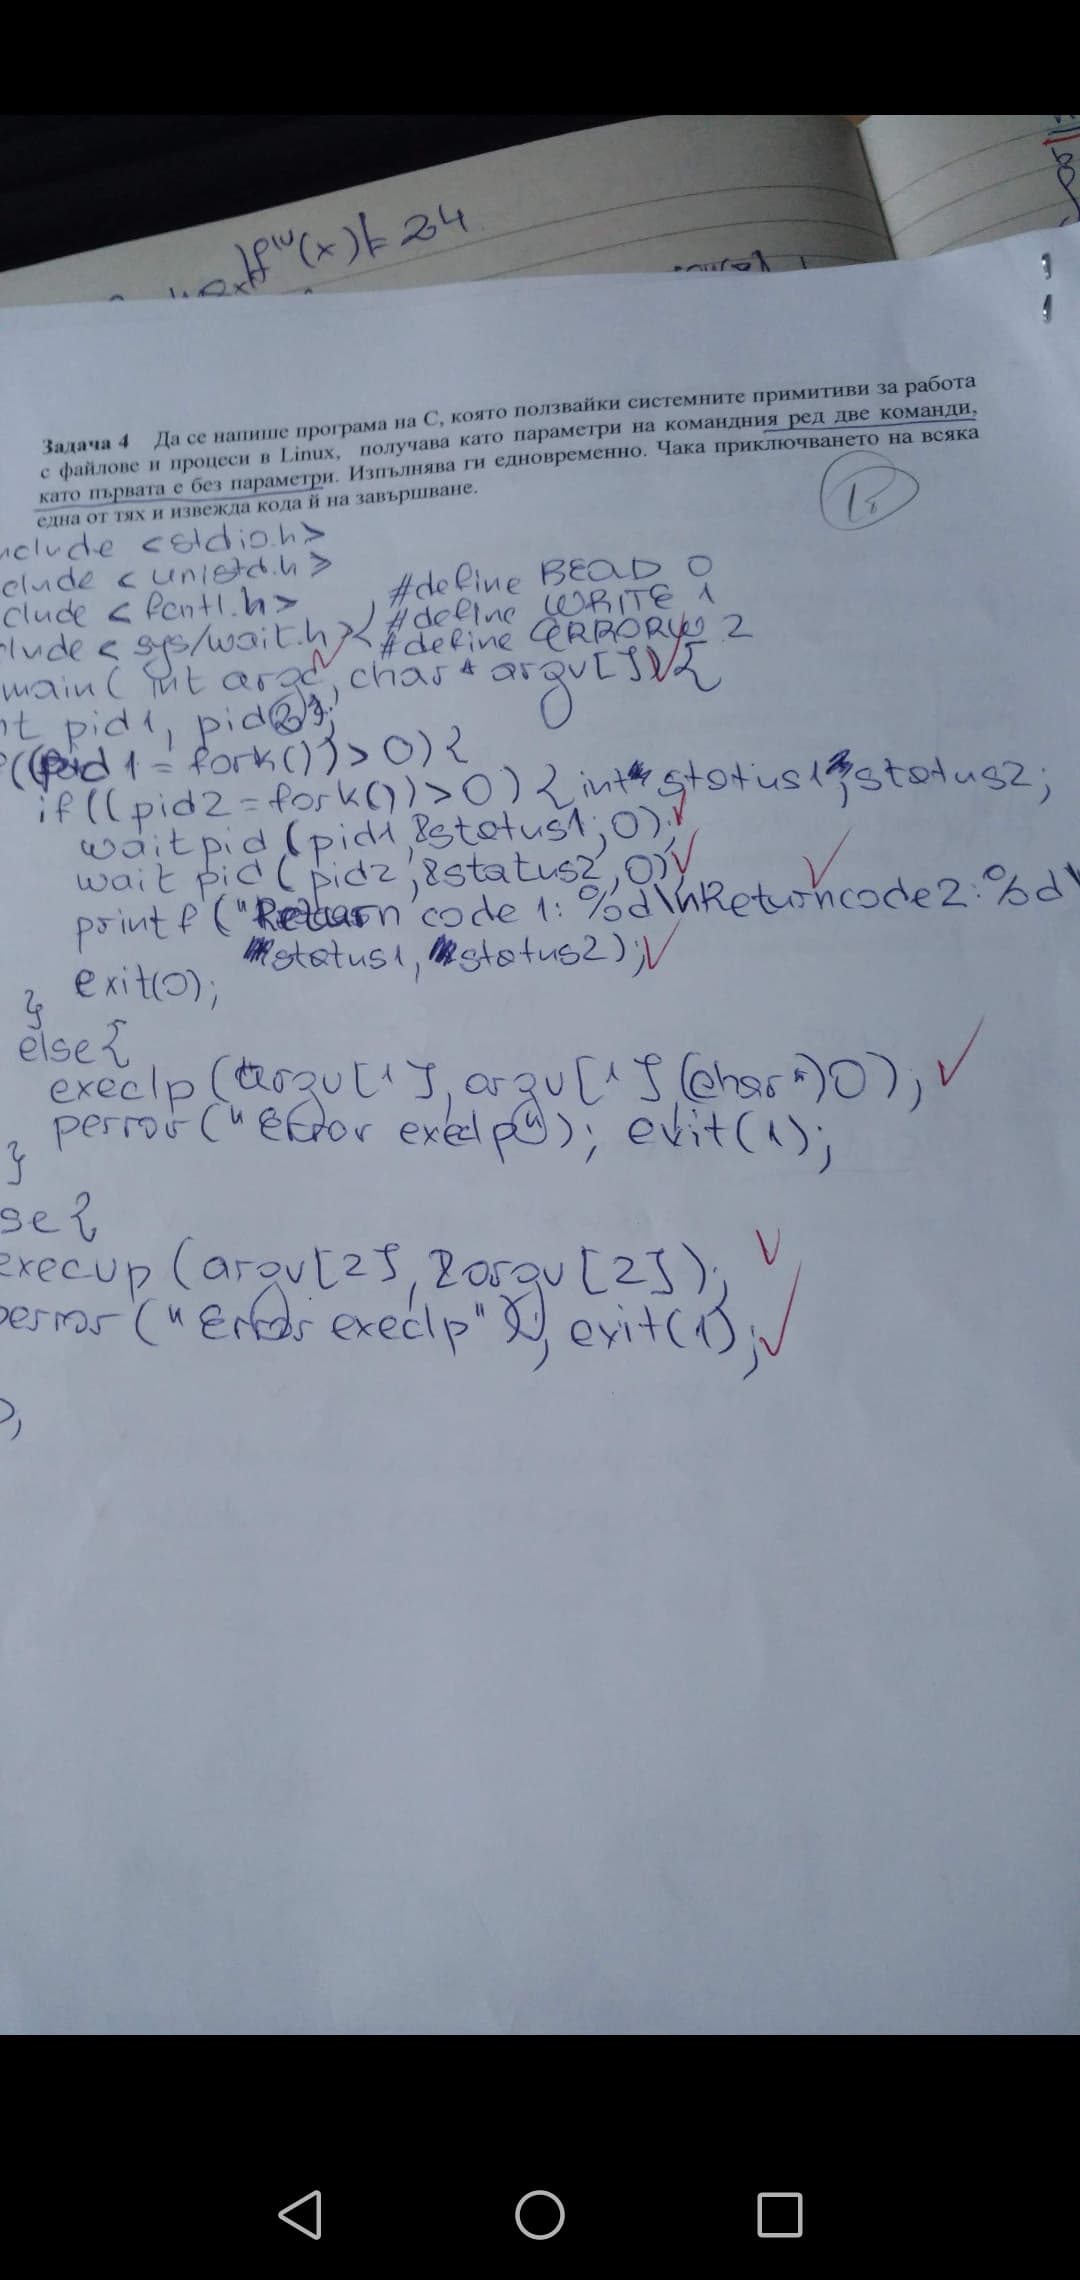 |f^(IV)(x)|= 24
Задача 4 Да се напише програма на C, която ползвайки системните примитиви за работа
с файлове и процеси в Linux, получава като параметри на командния ред две команди,
като първата е без параметри. Изпълнява ги едновременно. Чака приключването на всяка
една от тях и извежда кода й на завършване.
nclude <stdio.h>
clude <unistd.h>
clude <fcntl.h> #define READ 0
lude <sys/wait.h> #define WRITE 1
#define ERRORW 2
main(int argc, char* argv[]){
nt pid1, pid2;
((pid1=fork())>0){
if((pid2=fork())>0){int status1, status2;
waitpid(pid1,&status1,0);
waitpid(pid2,&status2,0);
printf("Return code 1: %d\nReturncode2:%d\
status1, status2);
exit(0);
}
else{
execlp(argv[1], argv[1](char*)0);
perror("Error execlp"); exit(1);
}
se{
execvp(argv[2], &argv[2]);
perror("Error execlp"); exit(1);